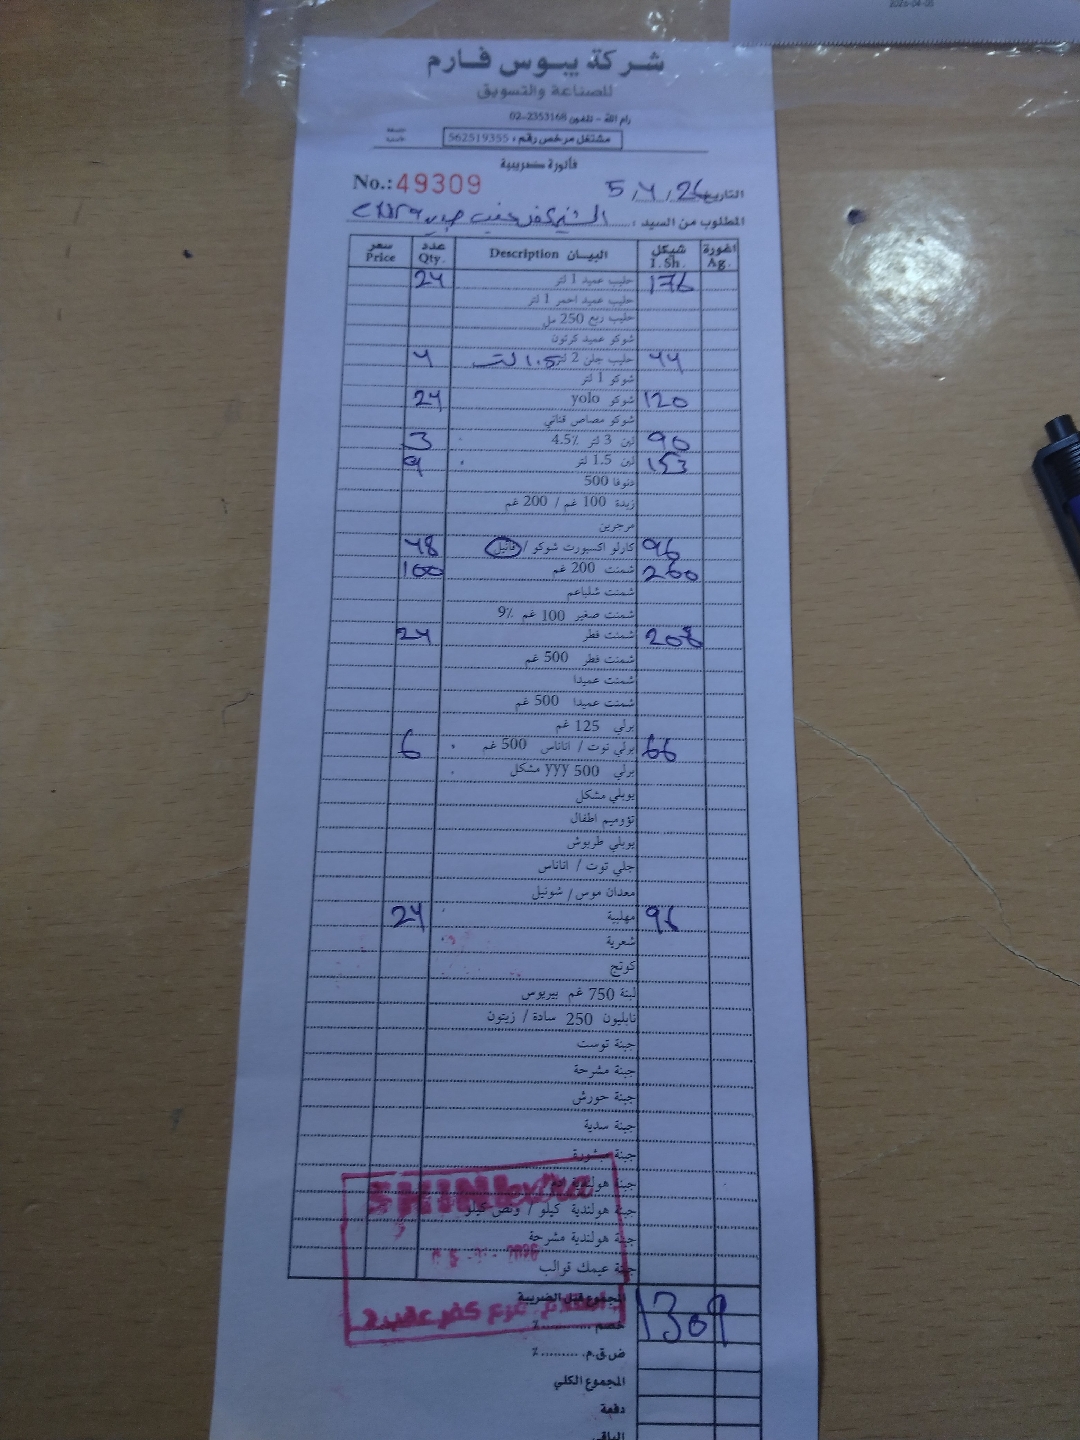 شركة يبوس فارم
للصناعة والتسويق
رام الله - تلفون 2353168-02
مشتغل مرخص رقم: 562519355
فاتورة ضريبية
No.: 49309
التاريخ 5/4/26
المطلوب من السيد:
سعر Price عدد Qty. البيان Description شيكل I. Sh. اغورة Ag.
24 حليب عميد 1 لتر 176
حليب عميد احمر 1 لتر
حليب ربع 250 مل
شوكو عميد كرتون
4 حليب جلي 2 لتر 1.5 لتر 44
شوكو 1 لتر
24 شوكو yolo 120
شوكو مصاص قناني
3 لبن 3 لتر 4.5% 90
9 لبن 1.5 لتر 153
دنوفا 500
زبدة 100 غم / 200 غم
مرجرين
48 كارلو اكسبورت شوكو / فانيل 96
100 شمنت 200 غم 260
شمنت شلباعم
شمنت صغير 100 غم 9%
24 شمنت فطر 208
شمنت فطر 500 غم
شمنت عميدا
شمنت عميدا 500 غم
برلي 125 غم
6 برلي توت / اناناس 500 غم 66
برلي 500 yyy مشكل
يوبلي مشكل
تؤوميم اطفال
يوبلي طربوش
جلي توت / اناناس
معدان موس / شونيل
24 مهلبية 96
شعرية
كوتج
لبنة 750 غم بيريوس
نابليون 250 سادة / زيتون
جبنة توست
جبنة مشرحة
جبنة حورش
جبنة سدية
جبنة مبشورة
جبنة هولندية
جبنة هولندية كيلو / ونص كيلو
جبنة هولندية مشرحة
جبنة عيمك قوالب
المجموع قبل الضريبة 1309
خصم ........... %
ض.ق.م. ......... %
المجموع الكلي
دفعة
الباقي